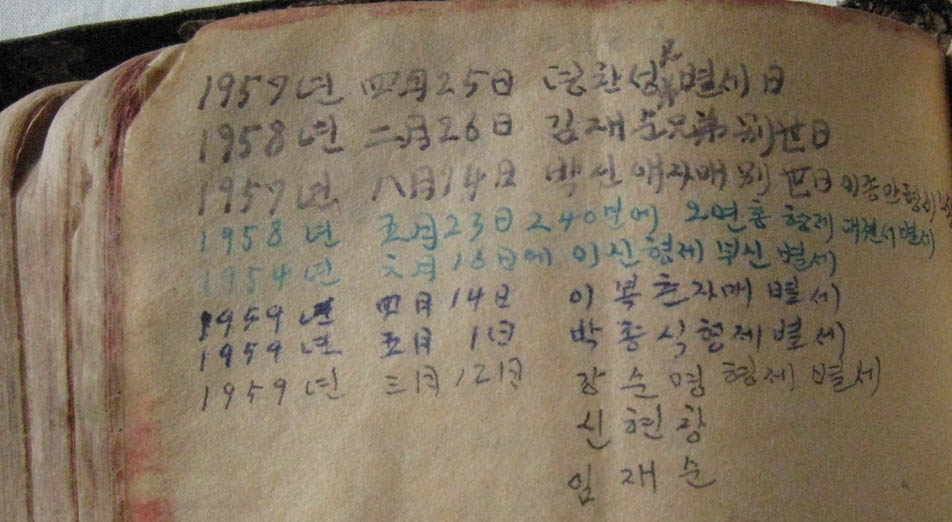 1957년 四月25日 별세日
1958년 二月26日 김재순兄弟別世日
1957년 八月14日 박신애자매別世日 이종만형제
1958년 五月23日 240면에 오연흥형제 별세
1954년 六月16日에 이신형제 부친 별세
1959년 四月14日 이복춘자매별세
1959년 五月 1日 박종식형제별세
1959년 三月12日 장순명형제별세
신현창
임재순